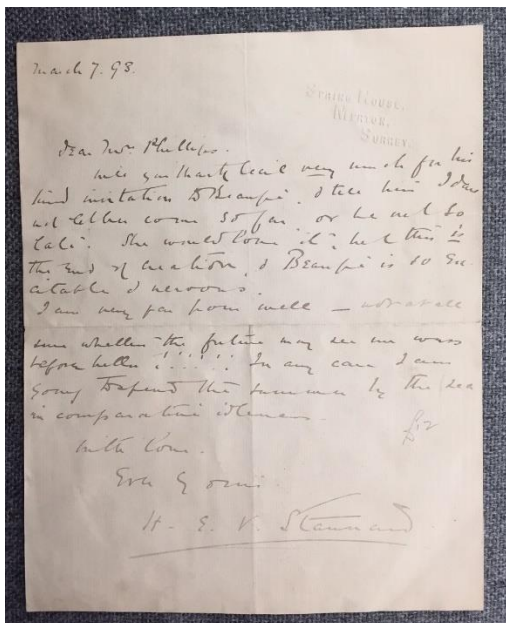 March 7. 93.
SPRING HOUSE,
MERTON,
SURREY.
Dear Mrs Phillips.
Will you thank Cecil very much for his
kind invitation to Beaupré, & tell him I dare
not let her come so far or be out so
late. She would love it; but this is
the end of creation, & Beaupré is so ex-
citable & nervous.
I am very far from well — not at all
sure whether the future may see me worse
before better!!!!! In any case I am
going to spend the summer by the sea
in comparative idleness.
With love.
Ever yours
H. E. V. Stannard
£12